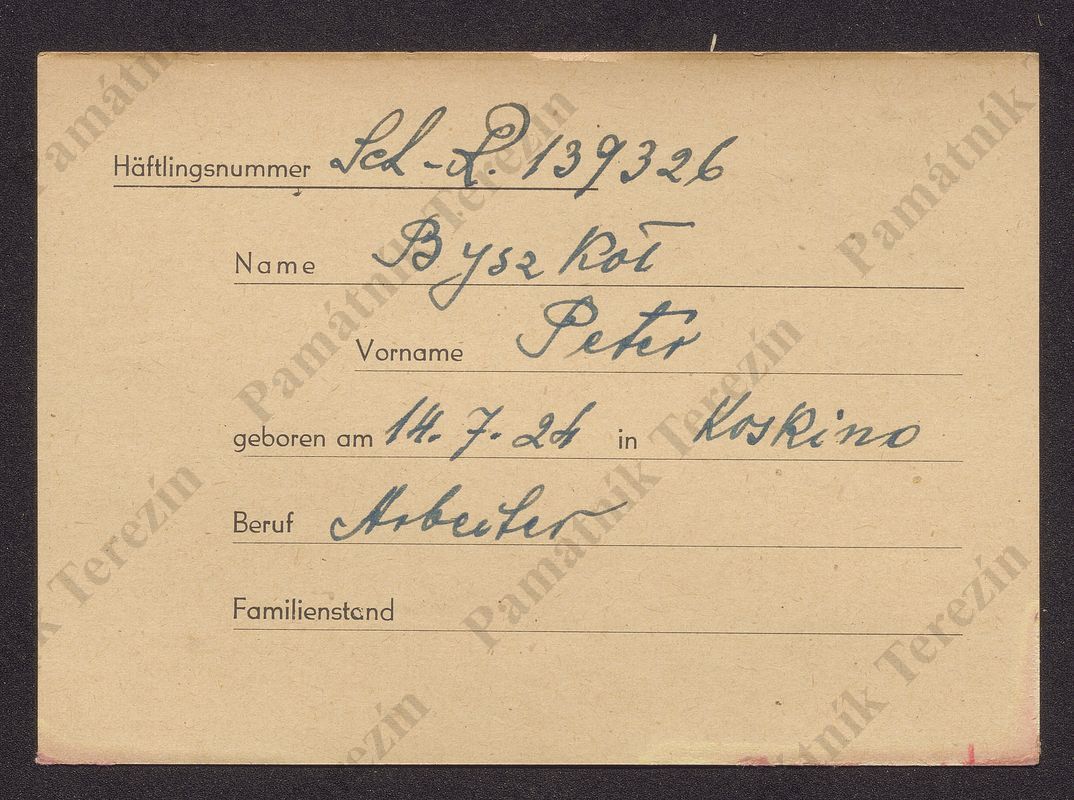 Häftlingsnummer Sch-P. 139326
Name Byszkot
Vorname Peter
geboren am 14. 7. 24 in Koskino
Beruf Arbeiter
Familienstand
Památník Terezín